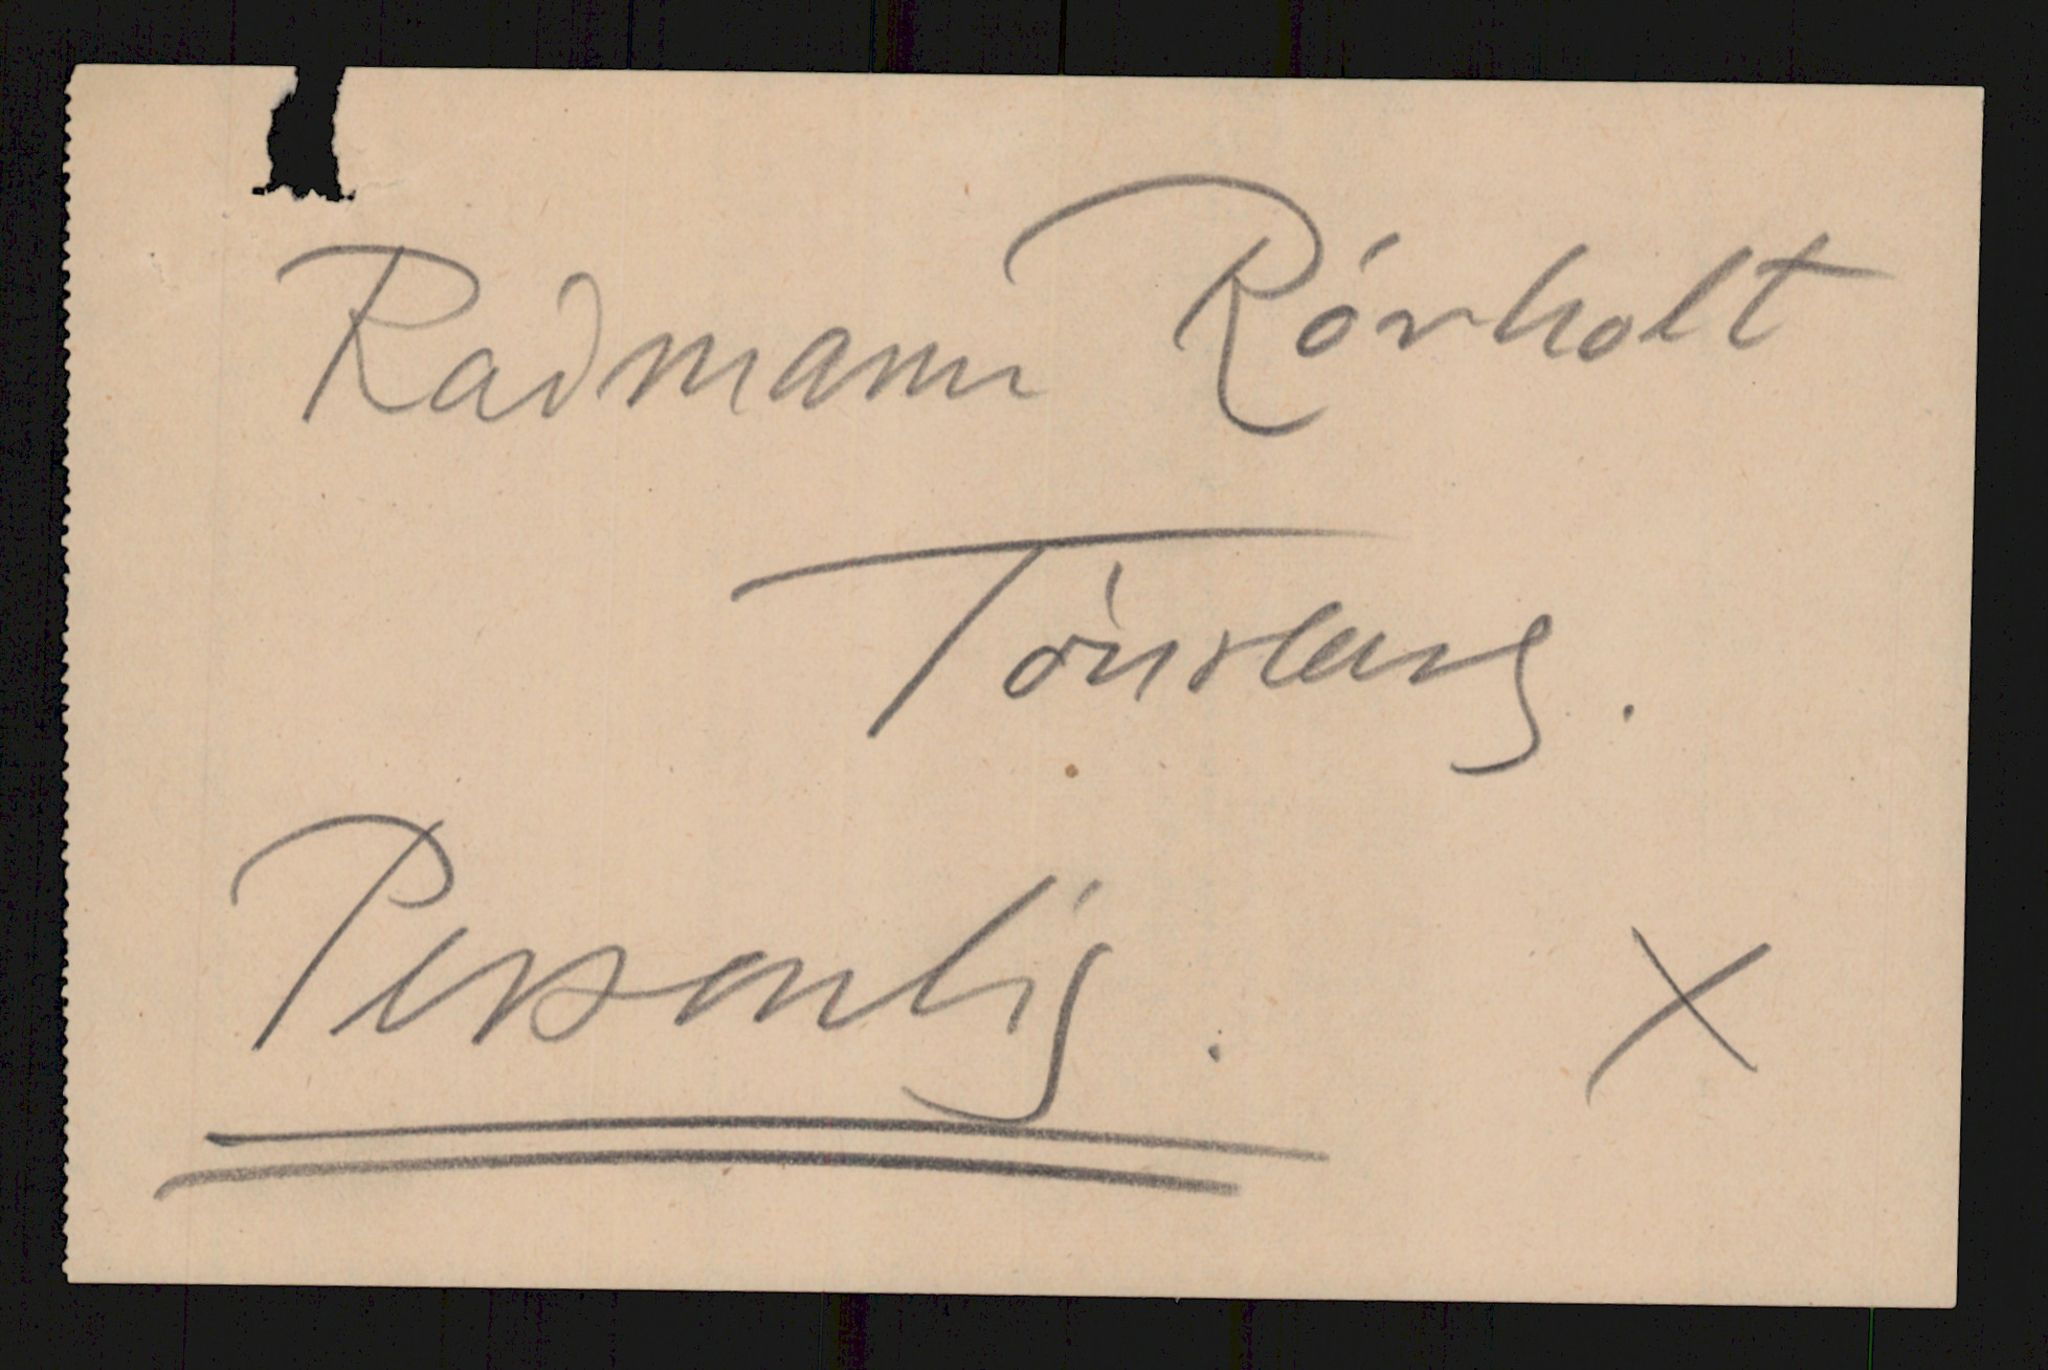 Radmann Rórholt
Tónsberg.
Personlig. X